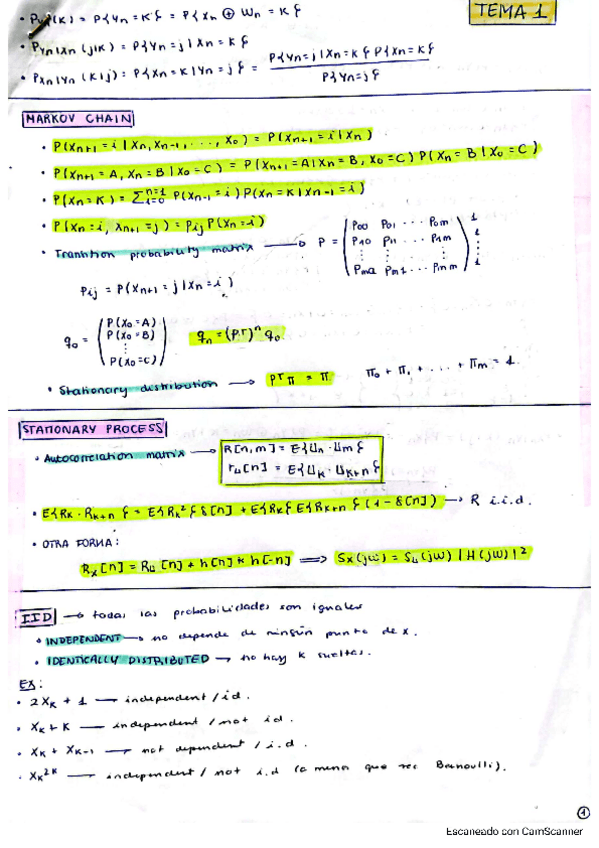 TEMA 1
• P_Yn(K) = P{Yn = K} = P{Xn ⊕ Wn = K}
• P_Yn|Xn (j|K) = P{Yn = j | Xn = K}
• P_Xn|Yn (K|j) = P{Xn = K | Yn = j} = P{Yn = j | Xn = K} P{Xn = K} / P{Yn = j}
MARKOV CHAIN
• P(Xn+1 = i | Xn, Xn-1, ..., X0) = P(Xn+1 = i | Xn)
• P(Xn+1 = A, Xn = B | X0 = C) = P(Xn+1 = A | Xn = B, X0 = C) P(Xn = B | X0 = C)
• P(Xn = K) = Σ P(Xn-1 = i) P(Xn = K | Xn-1 = i)
• P(Xn = i, Xn+1 = j) = pij P(Xn = i)
• Transition probability matrix → P = ( P00 P01 ... P0m ) 1
( P10 P11 ... P1m ) 1
( ⋮ ⋮ ⋮ ) ⋮
( Pm0 Pm1 ... Pmm ) 1
Pij = P(Xn+1 = j | Xn = i)
q0 = ( P(X0 = A) P(X0 = B) ⋮ P(X0 = C) ) qn = (P^T)^n q0
• Stationary distribution → P^T π = π π0 + π1 + ... + πm = 1
STATIONARY PROCESS
• Autocorrelation matrix → R[n,m] = E{Un · Um}
ru[n] = E{Uk · Uk+n}
• E{Rk · Rk+n} = E{Rk²} δ[n] + E{Rk} E{Rk+n} (1 - δ[n]) → R i.i.d.
• OTRA FORMA:
Rx[n] = Ru[n] * h[n] * h[-n] ⟹ Sx(jω) = Su(jω) |H(jω)|²
IID → todas las probabilidades son iguales
• INDEPENDENT → no depende de ningún punto de x.
• IDENTICALLY DISTRIBUTED → no hay k sueltas.
EX:
• 2Xk + 1 → independent / id.
• Xk + K → independent / not id.
• Xk + Xk-1 → not dependent / i.d.
• Xk^2K → independent / not i.d (a menos que sea Bernoulli).
1
Escaneado con CamScanner